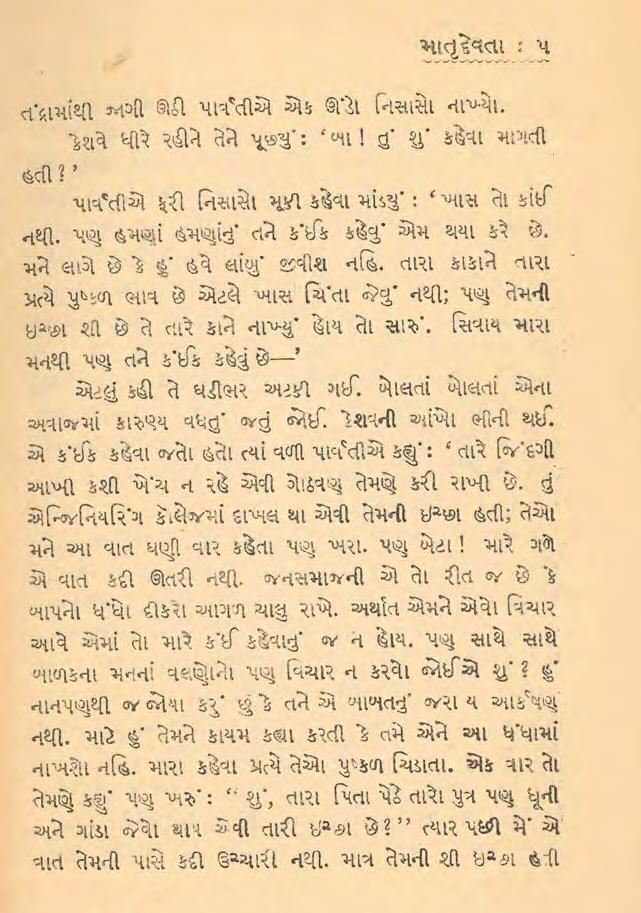 માતૃદેવતા : ૫
તંદ્રામાંથી જાગી ઊઠી પાર્વતીએ એક ઊંડો નિસાસો નાખ્યો.
કેશવે ધીરે રહીને તેને પૂછ્યું : ‘બા ! તું શું કહેવા માગતી
હતી ? ’
પાર્વતીએ ફરી નિસાસો મૂકી કહેવા માંડ્યું : ‘ખાસ તો કાંઈ
નથી. પણ હમણાં હમણાંનું તને કંઈક કહેવું એમ થયા કરે છે.
મને લાગે છે કે હું હવે લાંબું જીવીશ નહિ. તારા કાકાને તારા
પ્રત્યે પુષ્કળ ભાવ છે એટલે ખાસ ચિંતા જેવું નથી; પણ તેમની
ઇચ્છા શી છે તે તારે કાને નાખ્યું હોય તો સારું. સિવાય મારા
મનથી પણ તને કંઈક કહેવું છે—’
એટલું કહી તે ઘડીભર અટકી ગઈ. બોલતાં બોલતાં એના
અવાજમાં કારુણ્ય વધતું જતું જોઈ. કેશવની આંખો ભીની થઈ.
એ કંઈક કહેવા જતો હતો ત્યાં વળી પાર્વતીએ કહ્યું : ‘તારે જિંદગી
આખી કશી ખેંચ ન રહે એવી ગોઠવણ તેમણે કરી રાખી છે. તું
એન્જિનિયરિંગ કૉલેજમાં દાખલ થા એવી તેમની ઇચ્છા હતી; તેઓ
મને આ વાત ઘણી વાર કહેતા પણ ખરા. પણ બેટા ! મારે ગળે
એ વાત કદી ઊતરી નથી. જનસમાજની એ તો રીત જ છે કે
બાપનો ધંધો દીકરો આગળ ચાલુ રાખે. અર્થાત એમને એવો વિચાર
આવે એમાં તો મારે કંઈ કહેવાનું જ ન હોય. પણ સાથે સાથે
બાળકના મનનાં વલણોનો પણ વિચાર ન કરવો જોઈએ શું ? હું
નાનપણથી જ જોયા કરું છું કે તને એ બાબતનું જરા ય આકર્ષણ
નથી. માટે હું તેમને કાયમ કહ્યા કરતી કે તમે એને આ ધંધામાં
નાખશો નહિ. મારા કહેવા પ્રત્યે તેઓ પુષ્કળ ચિડાતા. એક વાર તો
તેમણે કહ્યું પણ ખરું : “શું, તારા પિતા પેઠે તારો પુત્ર પણ ધૂની
અને ગાંડા જેવો થાય એવી તારી ઇચ્છા છે?” ત્યાર પછી મેં એ
વાત તેમની પાસે કદી ઉચ્ચારી નથી. માત્ર તેમની શી ઇચ્છા હતી